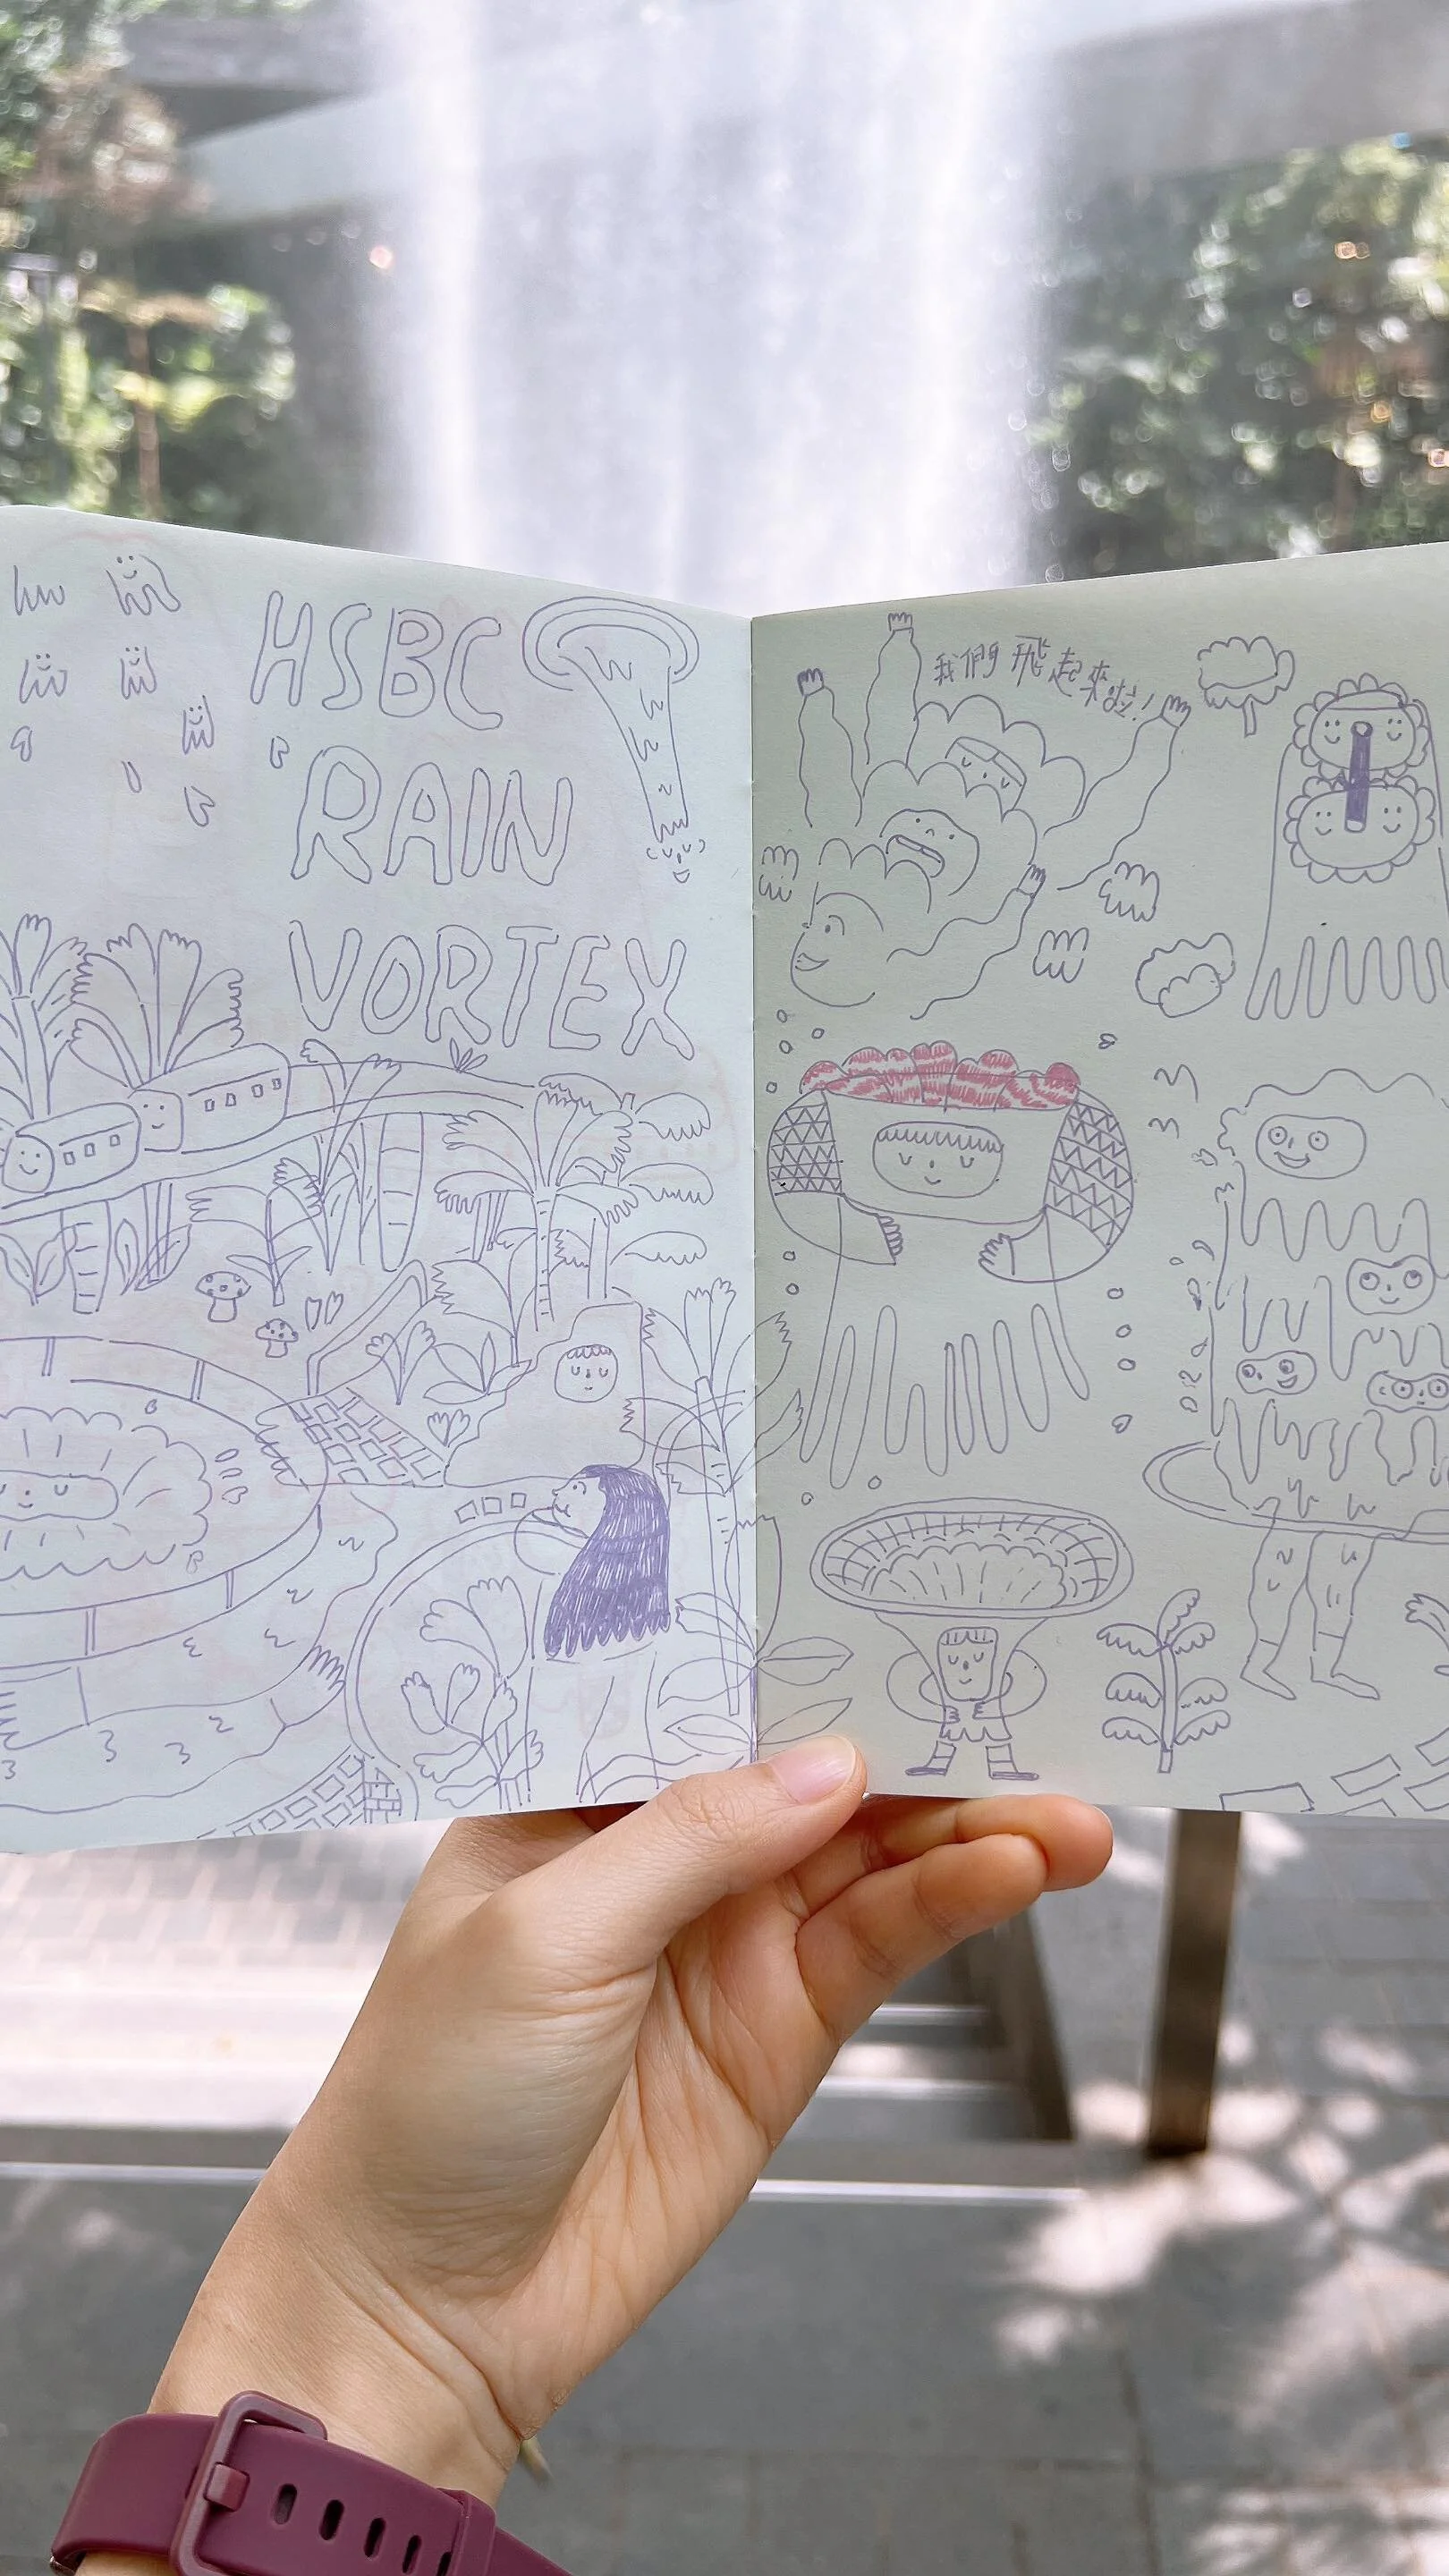 HSBC
RAIN
VORTEX
我們飛起來啦!